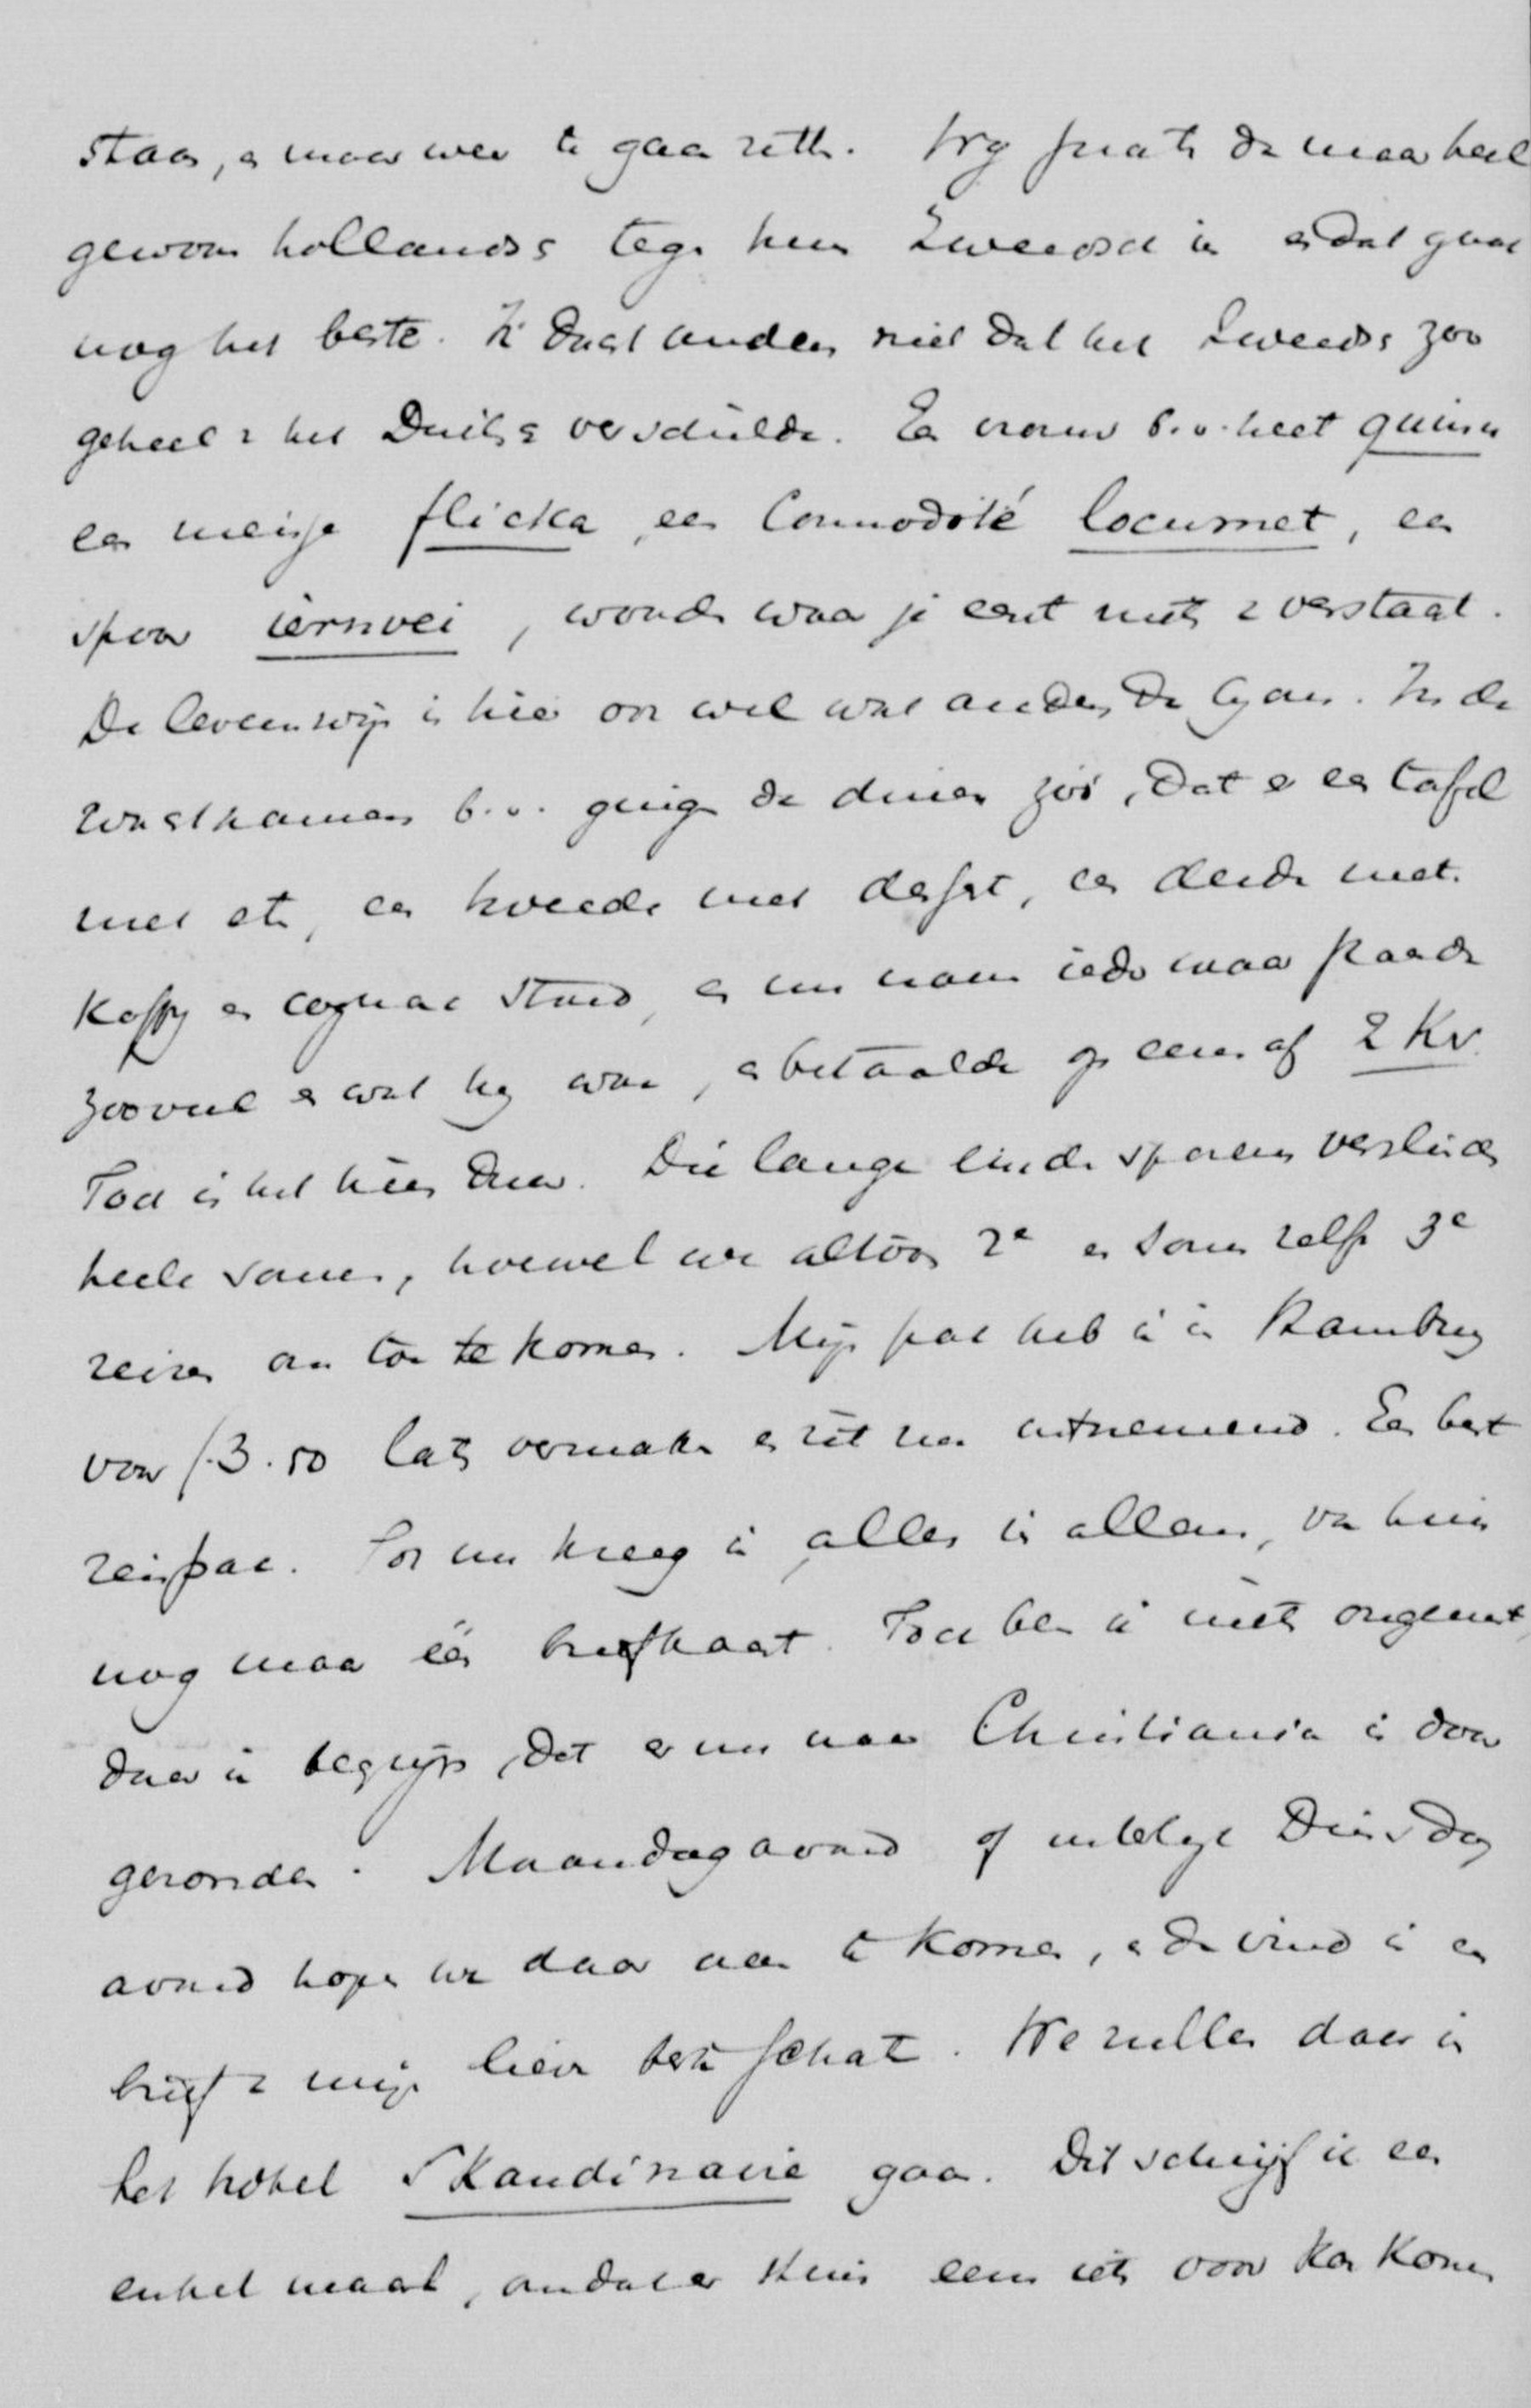 staan, en maar weer te gaan zitten. Wij praten dan maar heel
gewoon hollands tegen hun Zweedsch in en dat gaat
nog het beste. Ik dacht anders niet dat het Zweeds zoo
geheel v. het Duits verschilde. Een vrouw b.v. heet quinn
een meisje flicka, een Commodité locumet, een
spoor iernvei, woorden waar je eerst niets v verstaat.
De levenswijze is hier ook wel wat anders dan bij ons. In de
wachtkamers b.v. gingen de diners zoo, dat er een tafel
met eten, een tweede met dessert, een derde met
Koffy en cognac stond, en nu nam ieder maar
zooveel en wat hij wou, en betaalde op eens af 2 Kr.
Toch is het hier duur. Die lange einden sporen verslinden
heele sommen, hoewel we altoos 2e en soms zelfs 3e
reizen om toe te komen. Mijn pak heb ik in Hamburg
voor f 3.50 laten vermaken en zit nu uitnemend. Een best
reispak. Tot nu kreeg ik alles in allen, van huis
nog maar één briefkaart. Toch ben ik niets ongerust,
daar ik begrijp, dat er nu naar Christiania is door
gezonden. Maandagavond of uiterlijk Dinsdag
avond hopen we daar aan te komen, en dan vind ik een
brief v mijn lieve beste schat. We zullen daar in
het hotel Skandinavie gaan. Dit schrijf ik een
enkel maal, omdat er thuis eens iets voor kan komen